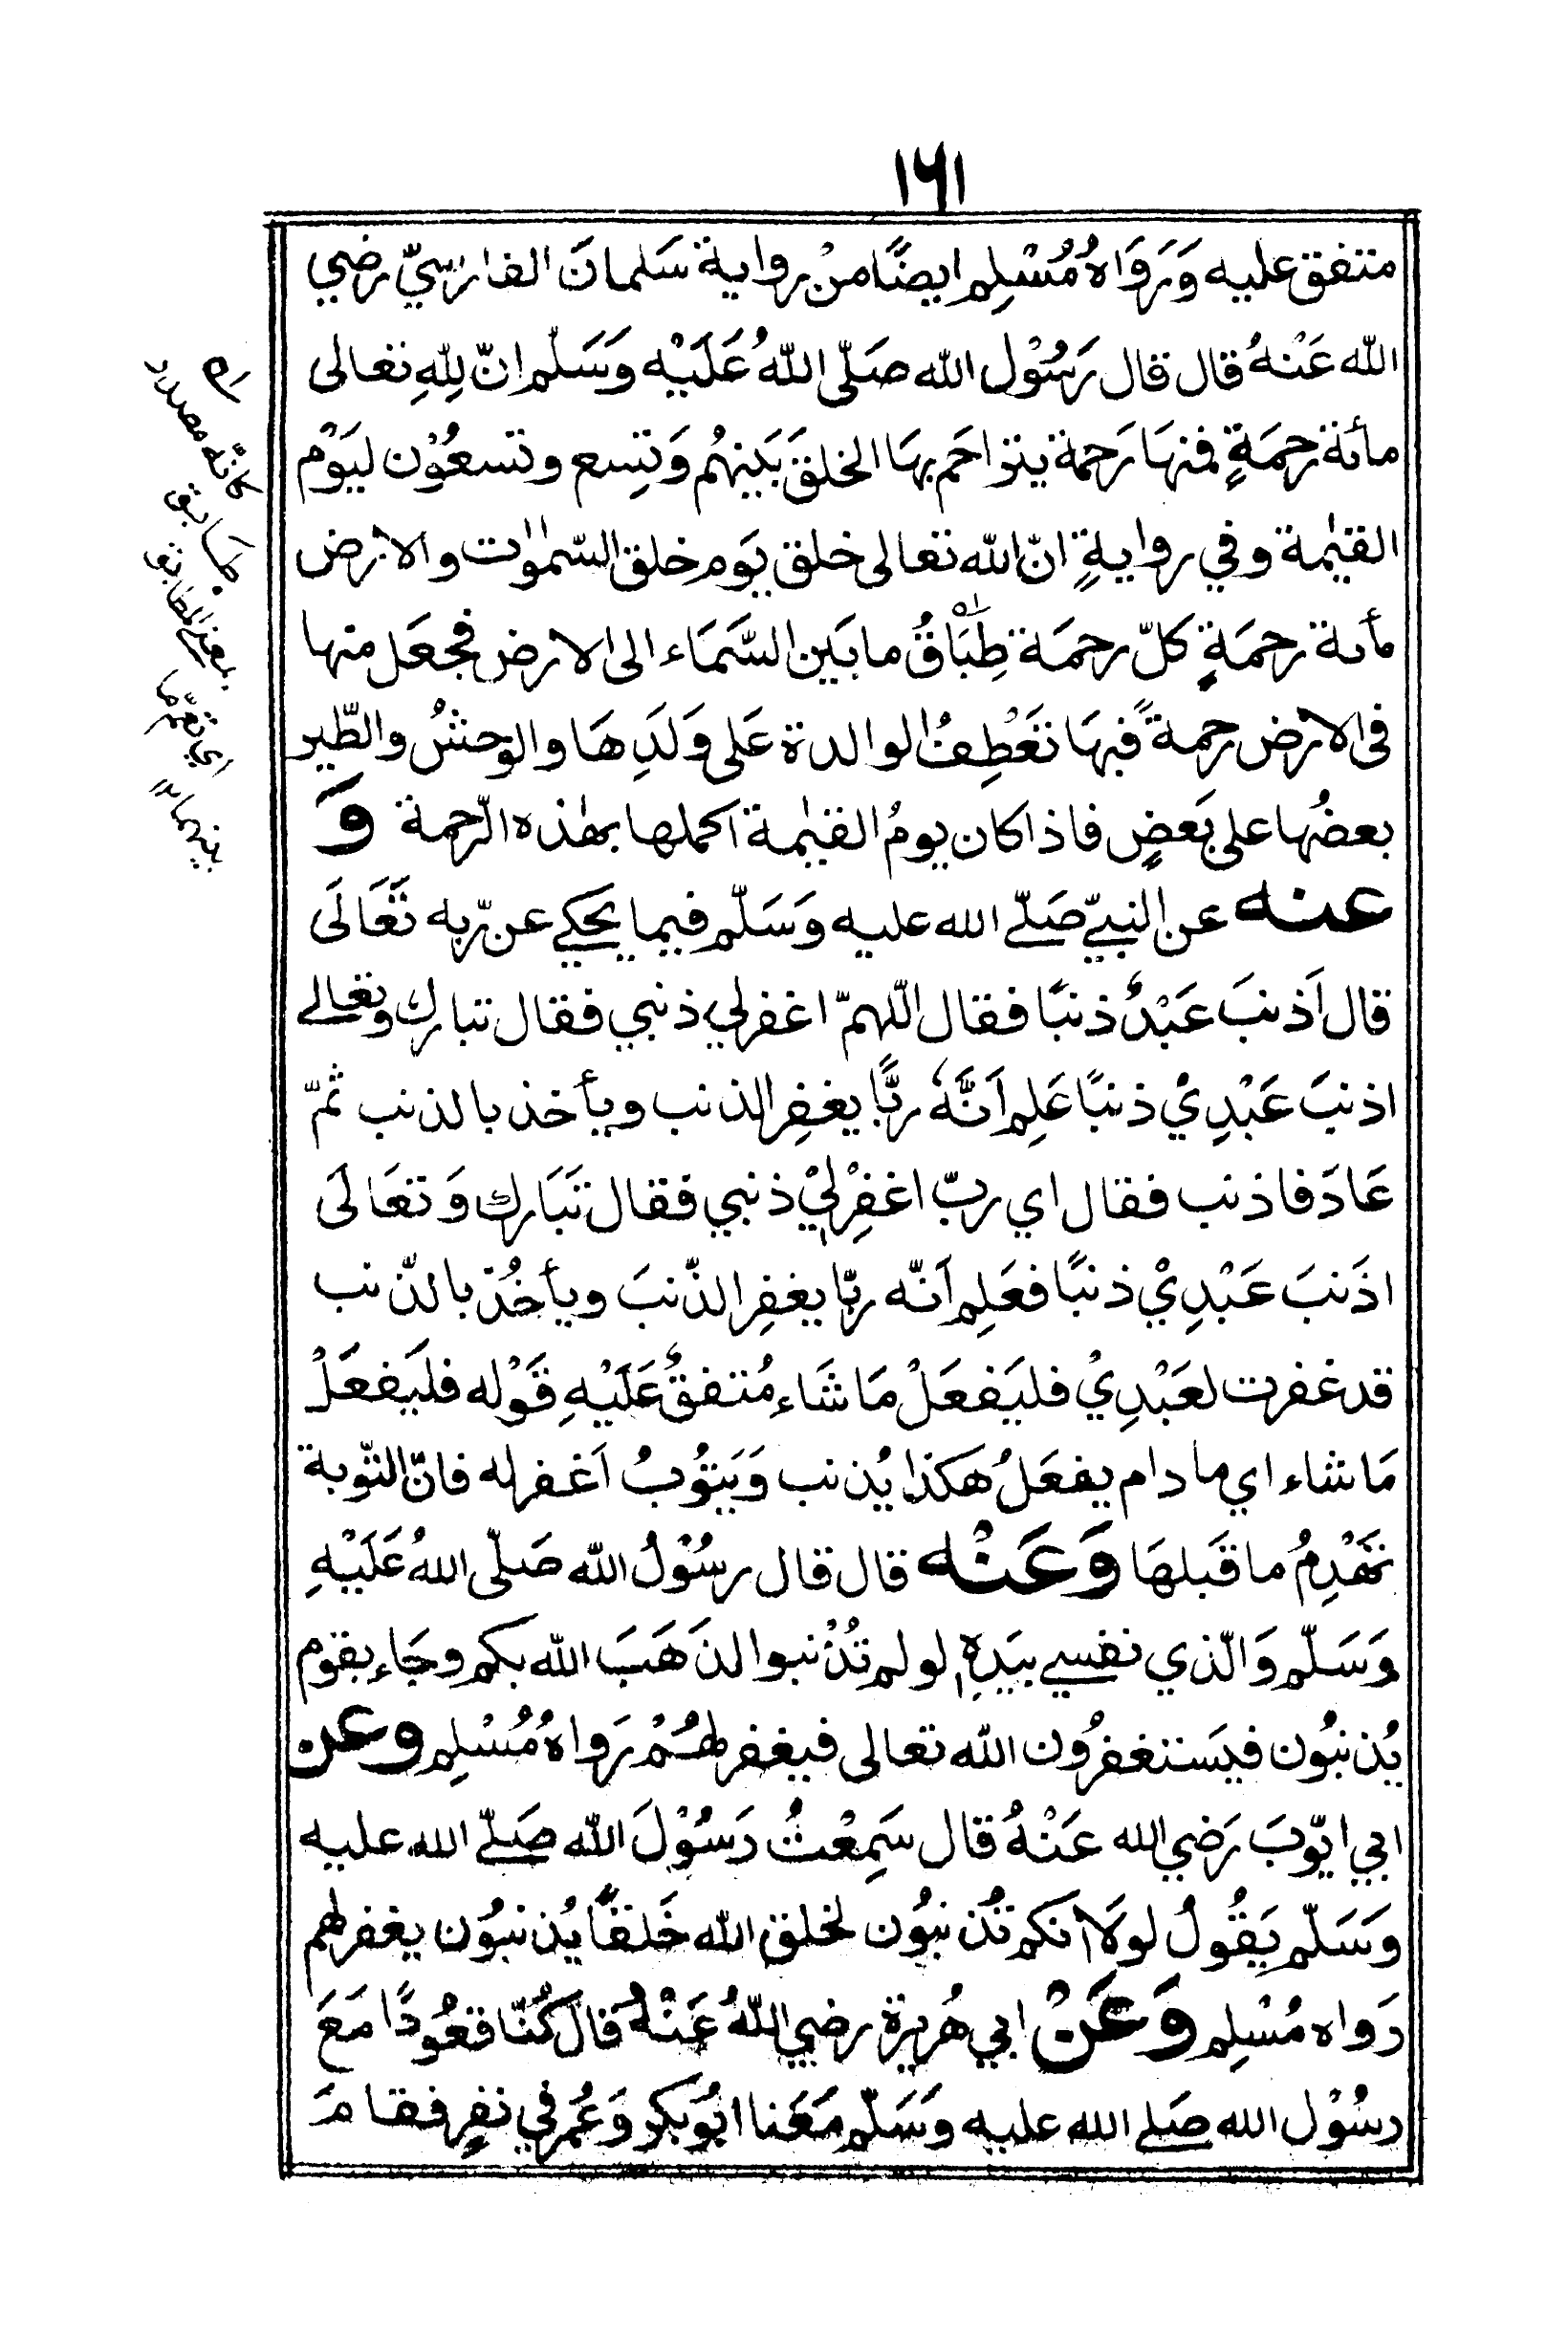 ١٦١
متفق عليه وَرَوَاهُ مُسْلِم ايضًا منْ رواية سَلمانَ الفارسيّ رضي
الله عَنْهُ قال قال رَسُوْل الله صَلّى اللهُ عَلَيْه وَسَلّم انّ لِلّهِ تعالى
مأئة رحمَةٍ فمنهَا رَحمة يتراحَم بهَا الخلقَ بَينهُم وَتِسع وتسعُوْن ليَوْم
القيٰمة وفي روايةٍ انّ الله تعالى خلق يَوم خلق السّمٰوٰت والارض
مأئة رحمَةٍ كلّ رحمَة طِبَاقُ ما بَين السَّمَاء الى الارض فجعَل منها
فى الارض رحمةً فبهَا تَعْطِفُ الوالدة عَلى وَلَدِهَا والوحشُ والطّير
بعضُها على بَعضٍ فاذا كان يومُ القيٰمة اكملها بهٰذه الرّحمة وَ
عنه عن النبيّ صَلّے الله عليه وَسَلّم فيما يحكي عن رّبه تَعَالَى
قال اَذنبَ عَبْدٌ ذنبًا فقال اللّهمّ اغفرلي ذنبي فقال تبارك وتعالے
اذنبَ عَبْدِيْ ذنبًا عَلِم اَنَّ لَهٗ ربًّا يغفِر الذنب ويأخذ بالذنب ثمّ
عَادَ فاذنب فقال اي ربّ اغفِرْلِيْ ذنبي فقال تَبَارك وَتعَالَى
اذَنبَ عَبْدِيْ ذنبًا فعَلِم اَنّ له ربّا يغفِر الذّنبَ ويأخُذ بالذّنب
قد غفرت لعَبْدِيْ فليَفعَلْ مَا شَاء مُتفقٌ عَلَيْهِ قَوْله فليَفعَلْ
مَا شاء اي ما دام يفعَلُ هكذا يُذنب وَيَتُوْبُ اَغفرله فانّ التّوبة
تَهْدِمُ ما قَبلهَا وَعَنْه قال قال رسُوْلُ الله صَلّى اللهُ عَلَيْهِ
وَسَلّم وَالّذي نفسي بيَدِهِ لو لم تُذْنبوا لذَهَبَ الله بكم وجَاء بقوم
يُذنبُون فيَستغفرُون الله تعالى فيغفر لهُمْ رَواهُ مُسْلِم وعن
ابي ايّوبَ رَضي الله عَنْهُ قال سَمِعْتُ رَسُوْلَ الله صَلّے الله عليه
وَسَلّم يَقُولُ لولَا انكم تُذنبُون لخلق الله خَلقًا يُذنبُون يغفر لهم
رَواه مُسْلِم وَعَنْ ابي هُريرة رضي اللهُ عَنْهُ قال كُنّا قعُودًا مَعَ
رسُوْل الله صَلے الله عليه وَسَلّم مَعَنا ابُو بَكر وَعُمر في نفرٍ فقامَ
كانّه مصدر
طابق
بمعني المطابق